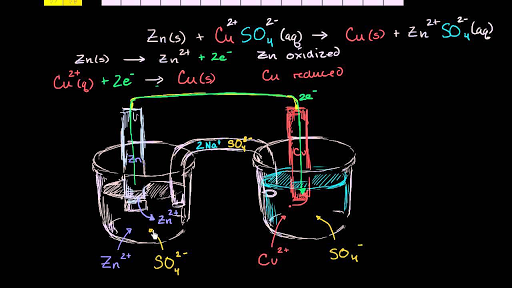 Zn(s) + Cu²⁺ SO₄²⁻ (aq) → Cu(s) + Zn²⁺ SO₄²⁻ (aq)
Zn(s) → Zn²⁺ + 2e⁻ Zn oxidized
Cu²⁺(q) + 2e⁻ → Cu(s) Cu reduced
2e⁻
Zn
2Na⁺ SO₄²⁻
Cu
Zn²⁺
Zn²⁺ SO₄²⁻ Cu²⁺ SO₄⁻